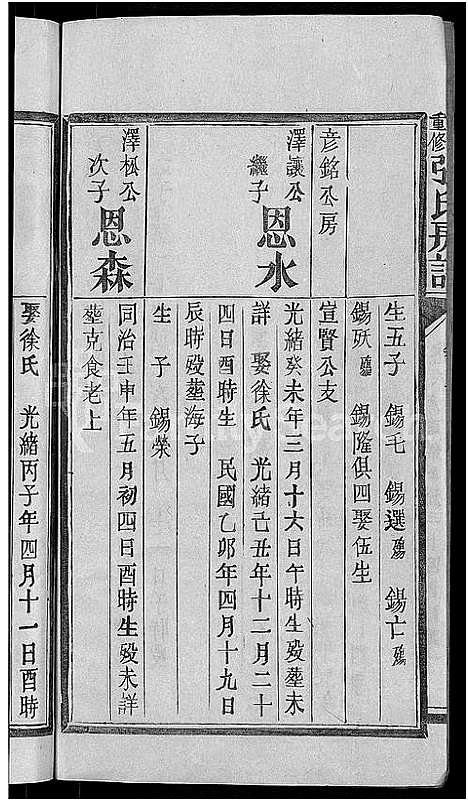 重修張氏房譜
生五子 錫毛 錫選殤 錫亡殤
錫殀殤 錫隆俱四娶伍生
彦銘公房
宣賢公支
澤讓公繼子 恩水
光緒癸未年三月十六日午時生殁塟未
詳 娶徐氏 光緒己丑年十二月二十
四日酉時生 民國乙卯年四月十九日
辰時殁塟海子
生子 錫榮
澤松公次子 恩森
同治壬申年五月初四日酉時生殁未詳
塟克食老上
娶徐氏 光緒丙子年四月十一日酉時